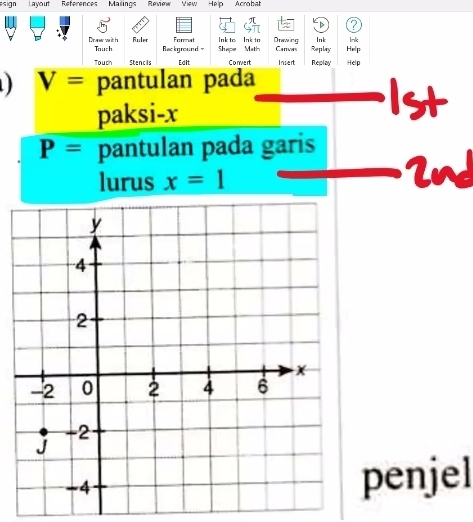 esign Layout References Mailings Review View Help Acrobat
Draw with Touch
Ruler
Format Background
Ink to Shape
Ink to Math
Drawing Canvas
Ink Replay
Ink Help
Touch Stencils Edit Convert Insert Replay Help
) V = pantulan pada
paksi-x
1st
P = pantulan pada garis
lurus x = 1
2nd
y
4
2
-2 0 2 4 6 x
-2
J
-4
penjel